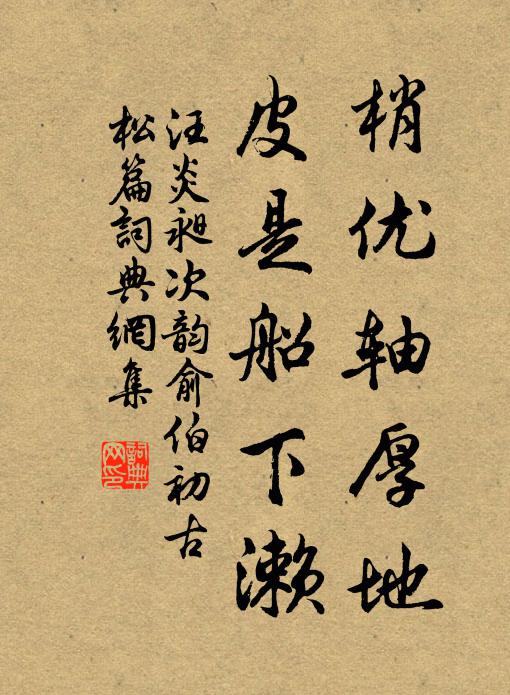 梢优轴厚地
皮是船下濑
汪炎昶次韵俞伯初古
松篇詞典網集
詞典网印